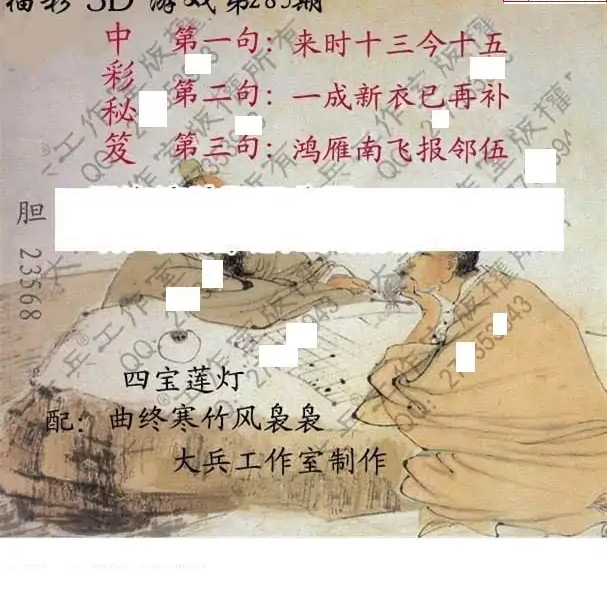 福彩3D游戏第285期
中彩秘笈
第一句：来时十三今十五
第二句：一成新衣已再补
第三句：鸿雁南飞报邻伍
胆 23568
四宝莲灯
配：曲终寒竹风袅袅
大兵工作室制作